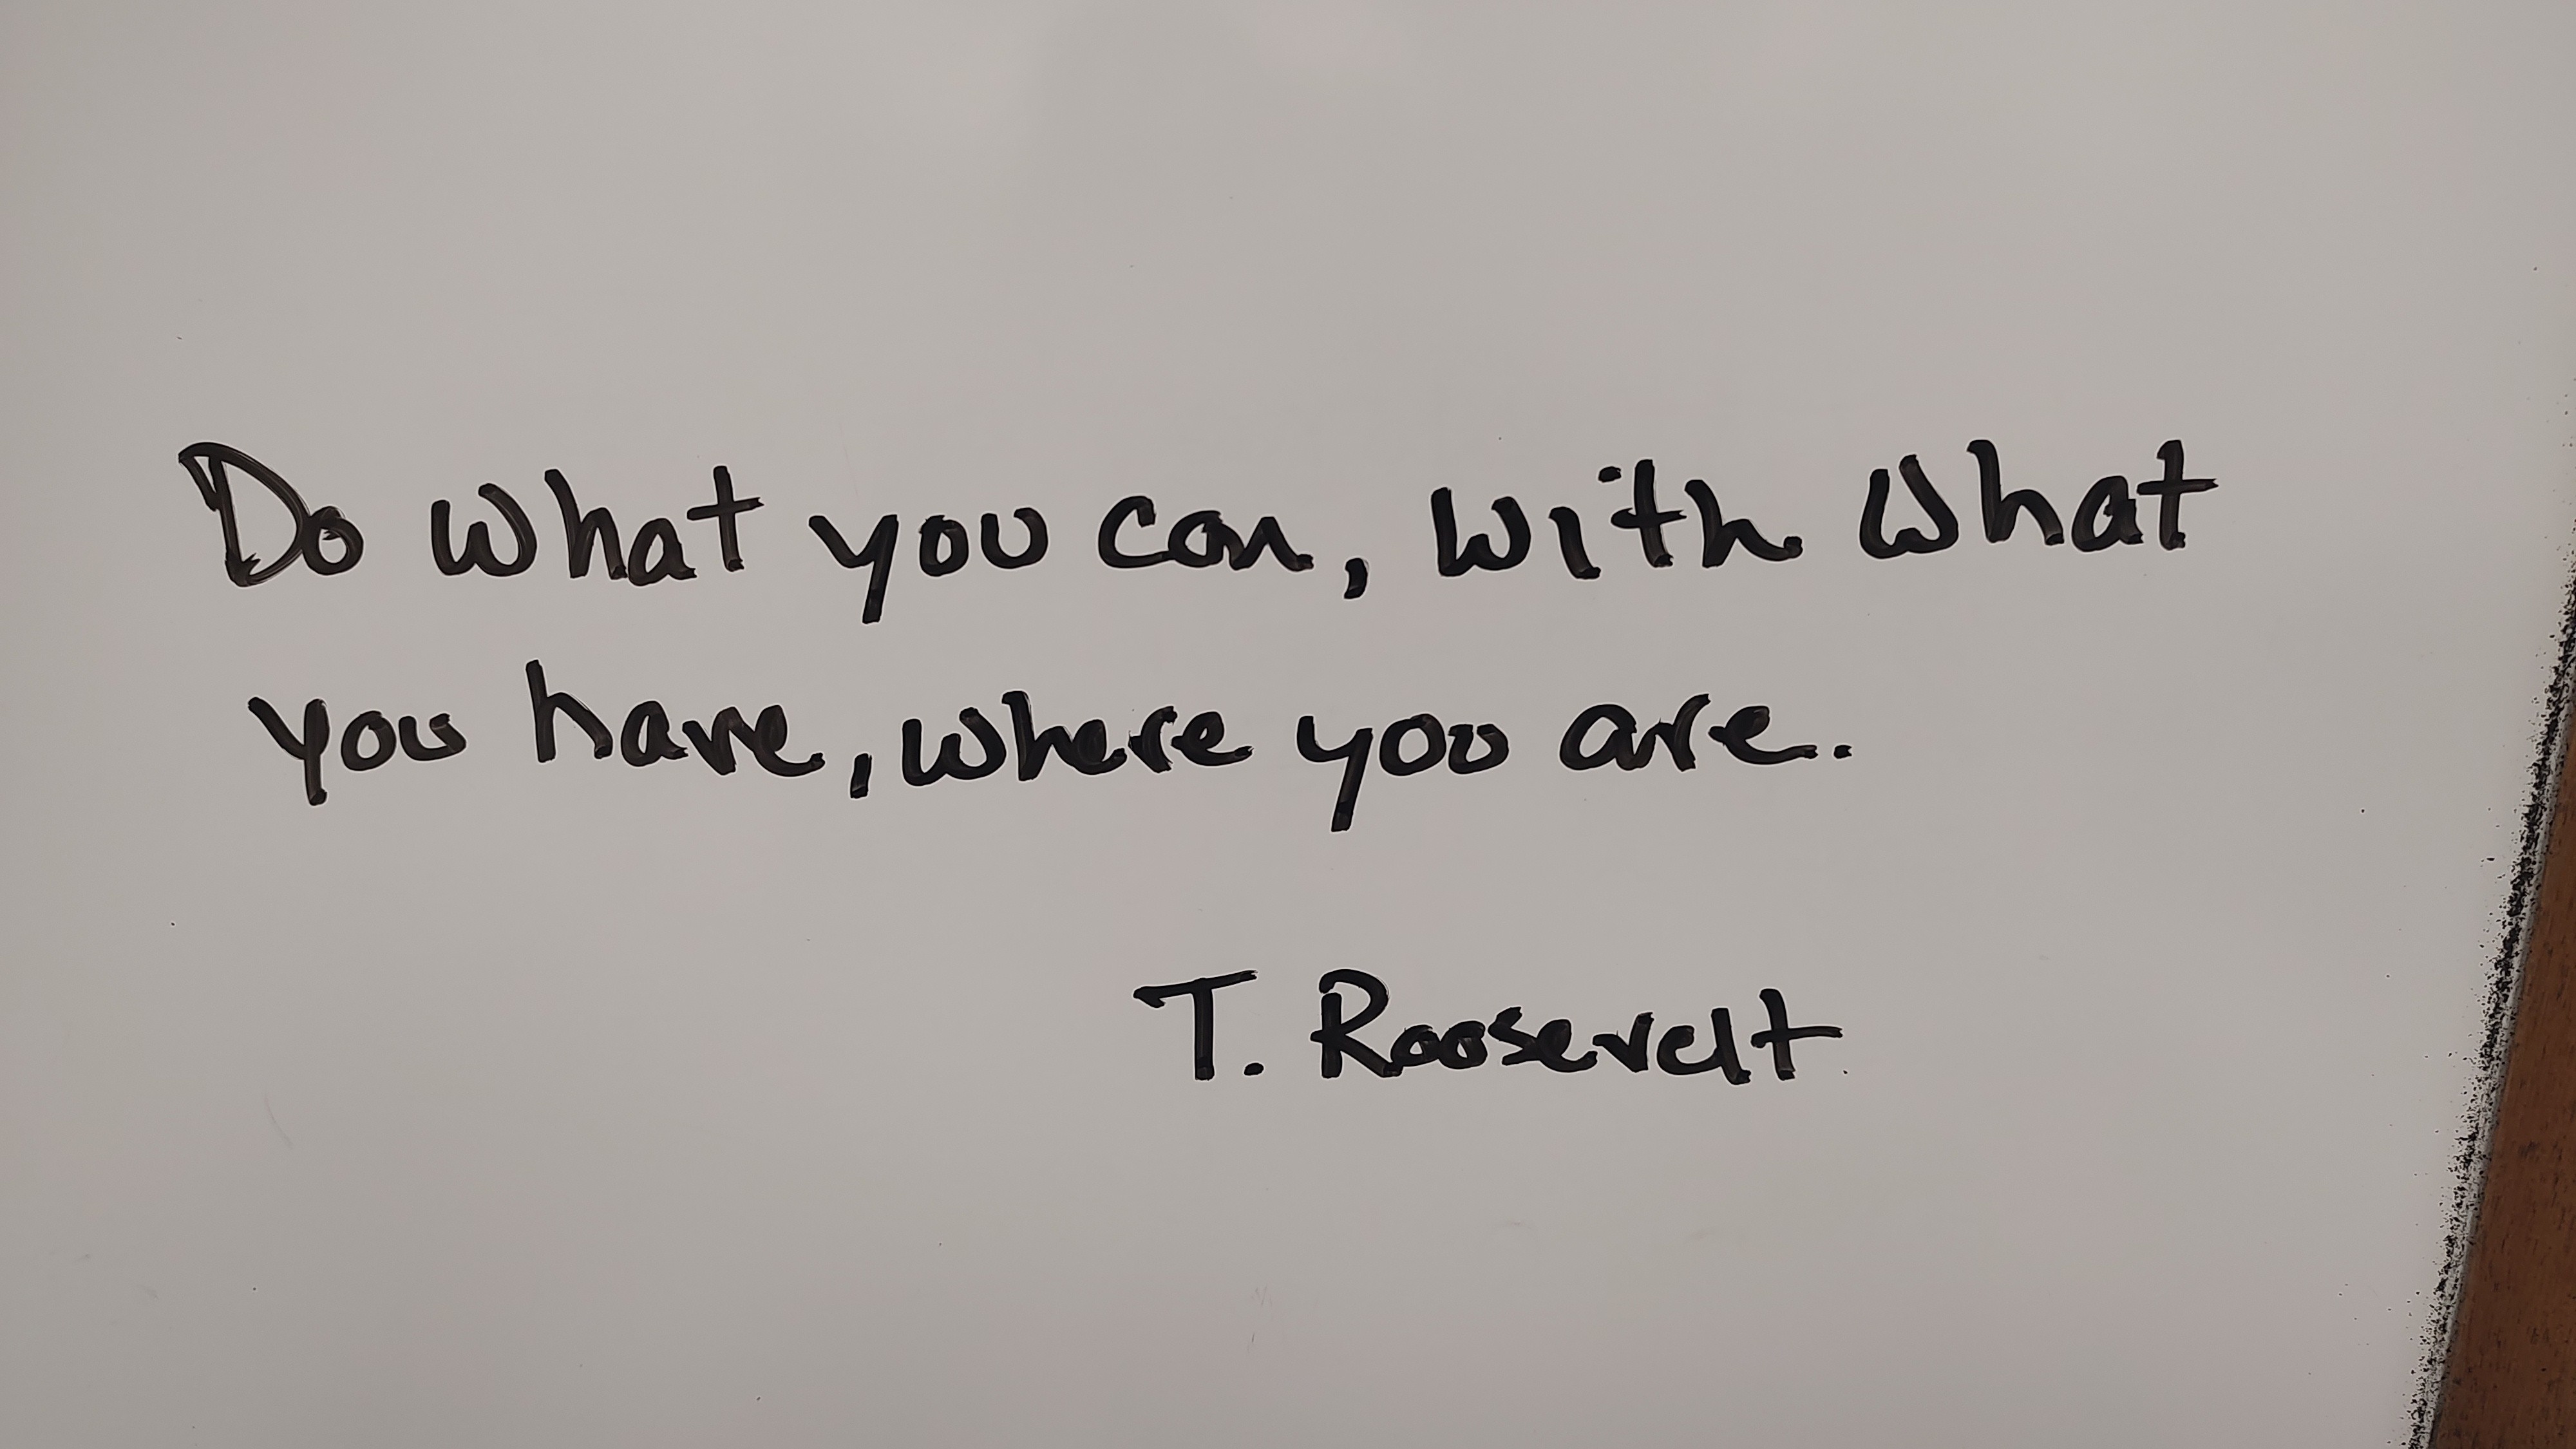 Do what you can, with what
you have, where you are.
T. Roosevelt